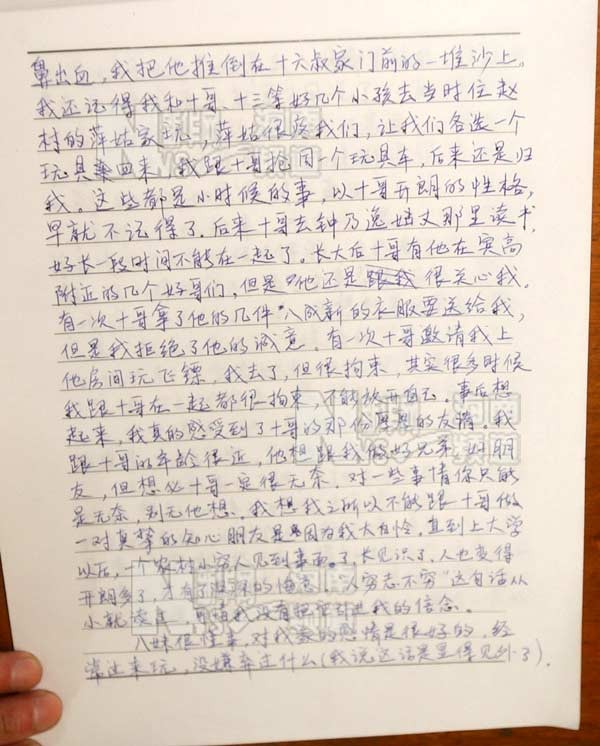 鼻出血，我把他推倒在十六叔家门前的一堆沙上。
我还记得我和十哥、十三等好几个小孩去当时位赵
村的萍姑家玩，萍姑很疼我们，让我们各选一个
玩具回来，我跟十哥抢同一个玩具车，后来还是归
我。这些都是小时候的事，以十哥开朗的性格，
早就不记得了。后来十哥去钟乃逸姑丈那里读书，
好长一段时间不能在一起了。长大后十哥有他在实高
附近的几个好哥们，但是他还是跟我很关心我。
有一次十哥拿了他的几件八成新的衣服要送给我，
但是我拒绝了他的诚意。有一次十哥邀请我上
他房间玩飞镖，我去了，但很拘束，其实很多时候
我跟十哥在一起都很拘束，不能放开自己。事后想
起来，我真的感受到了十哥的那份厚厚的友谊。我
跟十哥的年龄很近，他想跟我做好兄弟好朋
友，但想必十哥一定很无奈，对一些事情你只能
是无奈，别无他想。我想我之所以不能跟十哥做
一对真挚的知心朋友是因为我太自怜，直到上大学
以后，一个农村小穷人见到事面了，长见识了，人也变得
开朗多了，才有了深深的悔意。"人穷志不穷"这句话从
小就读过，可惜我没有把它引进我的信念。
八妹很懂事，对我家的感情是很好的，经
常过来玩，没嫌弃过什么（我说这话是显得见外了）。